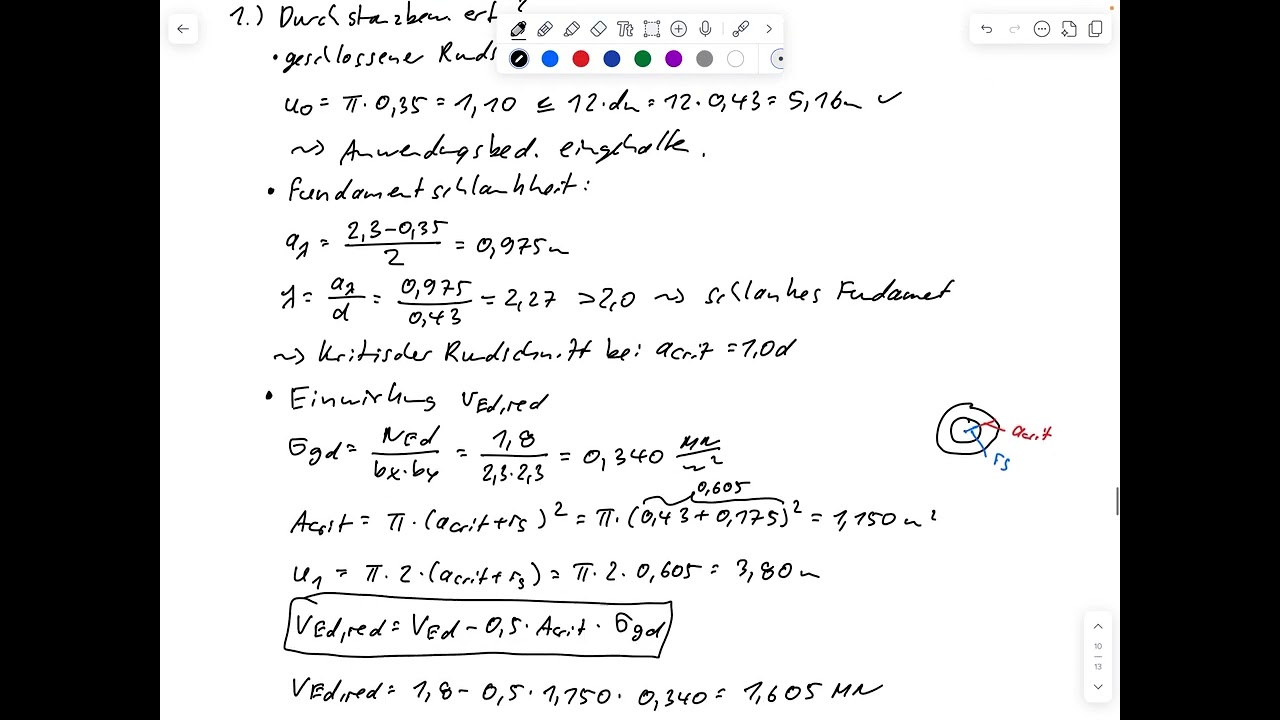 1.) Durchstanzbem. erf ?
• geschlossener Runds
u0 = π · 0,35 = 1,10 ≤ 12·dm = 12 · 0,43 = 5,16m ✓
~> Anwendungsbed. eingehalten.
• Fundamentschlankheit:
aλ = (2,3-0,35)/2 = 0,975m
λ = aλ/d = 0,975/0,43 = 2,27 > 2,0 ~> schlankes Fundament
~> Kritischer Rundschnitt bei acrit = 1,0d
• Einwirkung VEd,red
acrit
rs
σgd = NEd/(bx·by) = 1,8/(2,3·2,3) = 0,340 MN/m²
0,605
Acrit = π · (acrit+rs)² = π·(0,43+0,175)² = 1,150m²
u1 = π · 2 · (acrit+rs) = π · 2 · 0,605 = 3,80m
VEd,red = VEd - 0,5 · Acrit · σgd
VEd,red = 1,8 - 0,5 · 1,150 · 0,340 = 1,605 MN
Tt
10
13